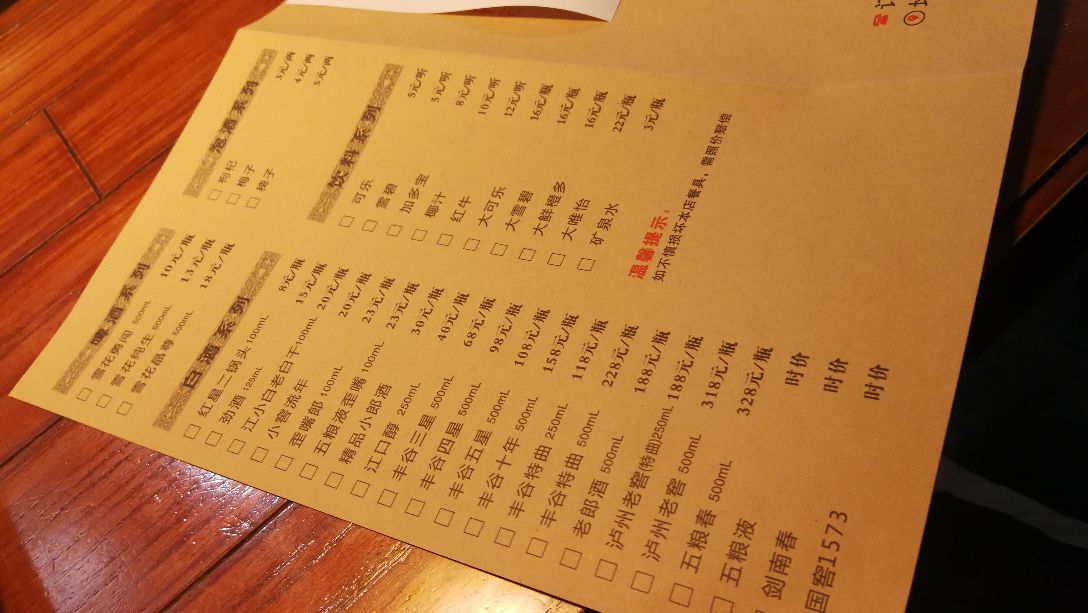 啤酒系列
雪花勇闯 500mL 10元/瓶
雪花纯生 500mL 13元/瓶
雪花晶尊 500mL 18元/瓶
泡酒系列
枸杞 3元/两
梅子 4元/两
5元/两
白酒系列
红星二锅头 100mL 8元/瓶
劲酒 125mL 15元/瓶
江小白老白干100mL 20元/瓶
小窖流年 20元/瓶
歪嘴郎 100mL 23元/瓶
五粮液歪嘴 100mL 23元/瓶
精品小郎酒 30元/瓶
江口醇 250mL 40元/瓶
丰谷三星 500mL 68元/瓶
丰谷四星 500mL 98元/瓶
丰谷五星 500mL 108元/瓶
丰谷十年 500mL 158元/瓶
丰谷特曲 250mL 118元/瓶
丰谷特曲 500mL 228元/瓶
老郎酒 500mL 188元/瓶
泸州老窖(特曲)250mL 188元/瓶
泸州老窖 500mL 318元/瓶
五粮春 500mL 328元/瓶
五粮液 时价
剑南春 时价
国窖1573 时价
饮料系列
可乐 5元/听
雪碧 5元/听
加多宝 8元/听
椰汁 10元/听
红牛 12元/听
大可乐 16元/瓶
大雪碧 16元/瓶
大鲜橙多 16元/瓶
大唯怡 22元/瓶
矿泉水 3元/瓶
温馨提示：
如不慎损坏本店餐具，需照价赔偿